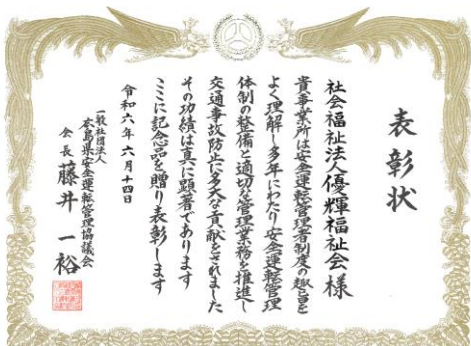 表彰状
社会福祉法人優輝福祉会様
貴事業所は安全運転管理者制度の趣旨を
よく理解し多年にわたり安全運転管理
体制の整備と適切な管理業務を推進し
交通事故防止に多大な貢献をされました
その功績は真に顕著であります
ここに記念品を贈り表彰します
令和六年六月十四日
一般社団法人
広島県安全運転管理協議会
会長 藤井一裕